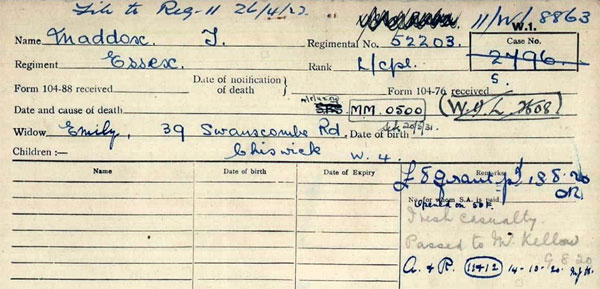 File to Reg-11 26/4/27. 11/W/8863
W.1.
Name Maddox. J. Regimental No. 52203. Case No.
Regiment Essex. Rank L/cpl. 2796
S.
Form 104-88 received Date of notification of death Form 104-76 received
Date and cause of death MM 0500
Widow Emily, 39 Swanscombe Rd, Date of birth 20/5/31.
Children :— Chiswick W. 4.
Name Date of birth Date of Expiry Remarks
£5 grant pd 13.8.20
No for whom S.A. is paid.
Opened on
Irish casualty.
Passed to Mr. Kellow
9 8 20
A. & R. 11412 14-10-20